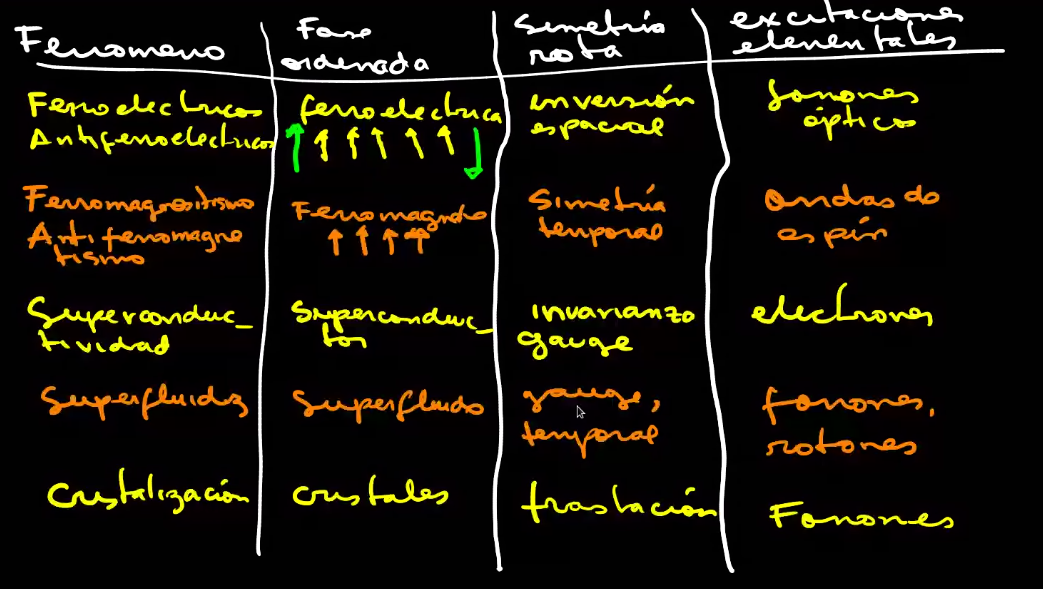 Fenomeno
Fase
ordenada
Simetría
rota
excitaciones
elementales
Ferroelectricos
Antiferroelectricos
ferroelectrica
inversión
espacial
fonones
ópticos
Ferromagnetismo
Antiferromagne
tismo
Ferromagneto
Simetría
temporal
Ondas de
espín
Superconduc_
tividad
Superconduc_
tor
invarianza
gauge
electrones
Superfluidez
Superfluido
gauge,
temporal
fonones,
rotones
Cristalización
cristales
traslación
Fonones